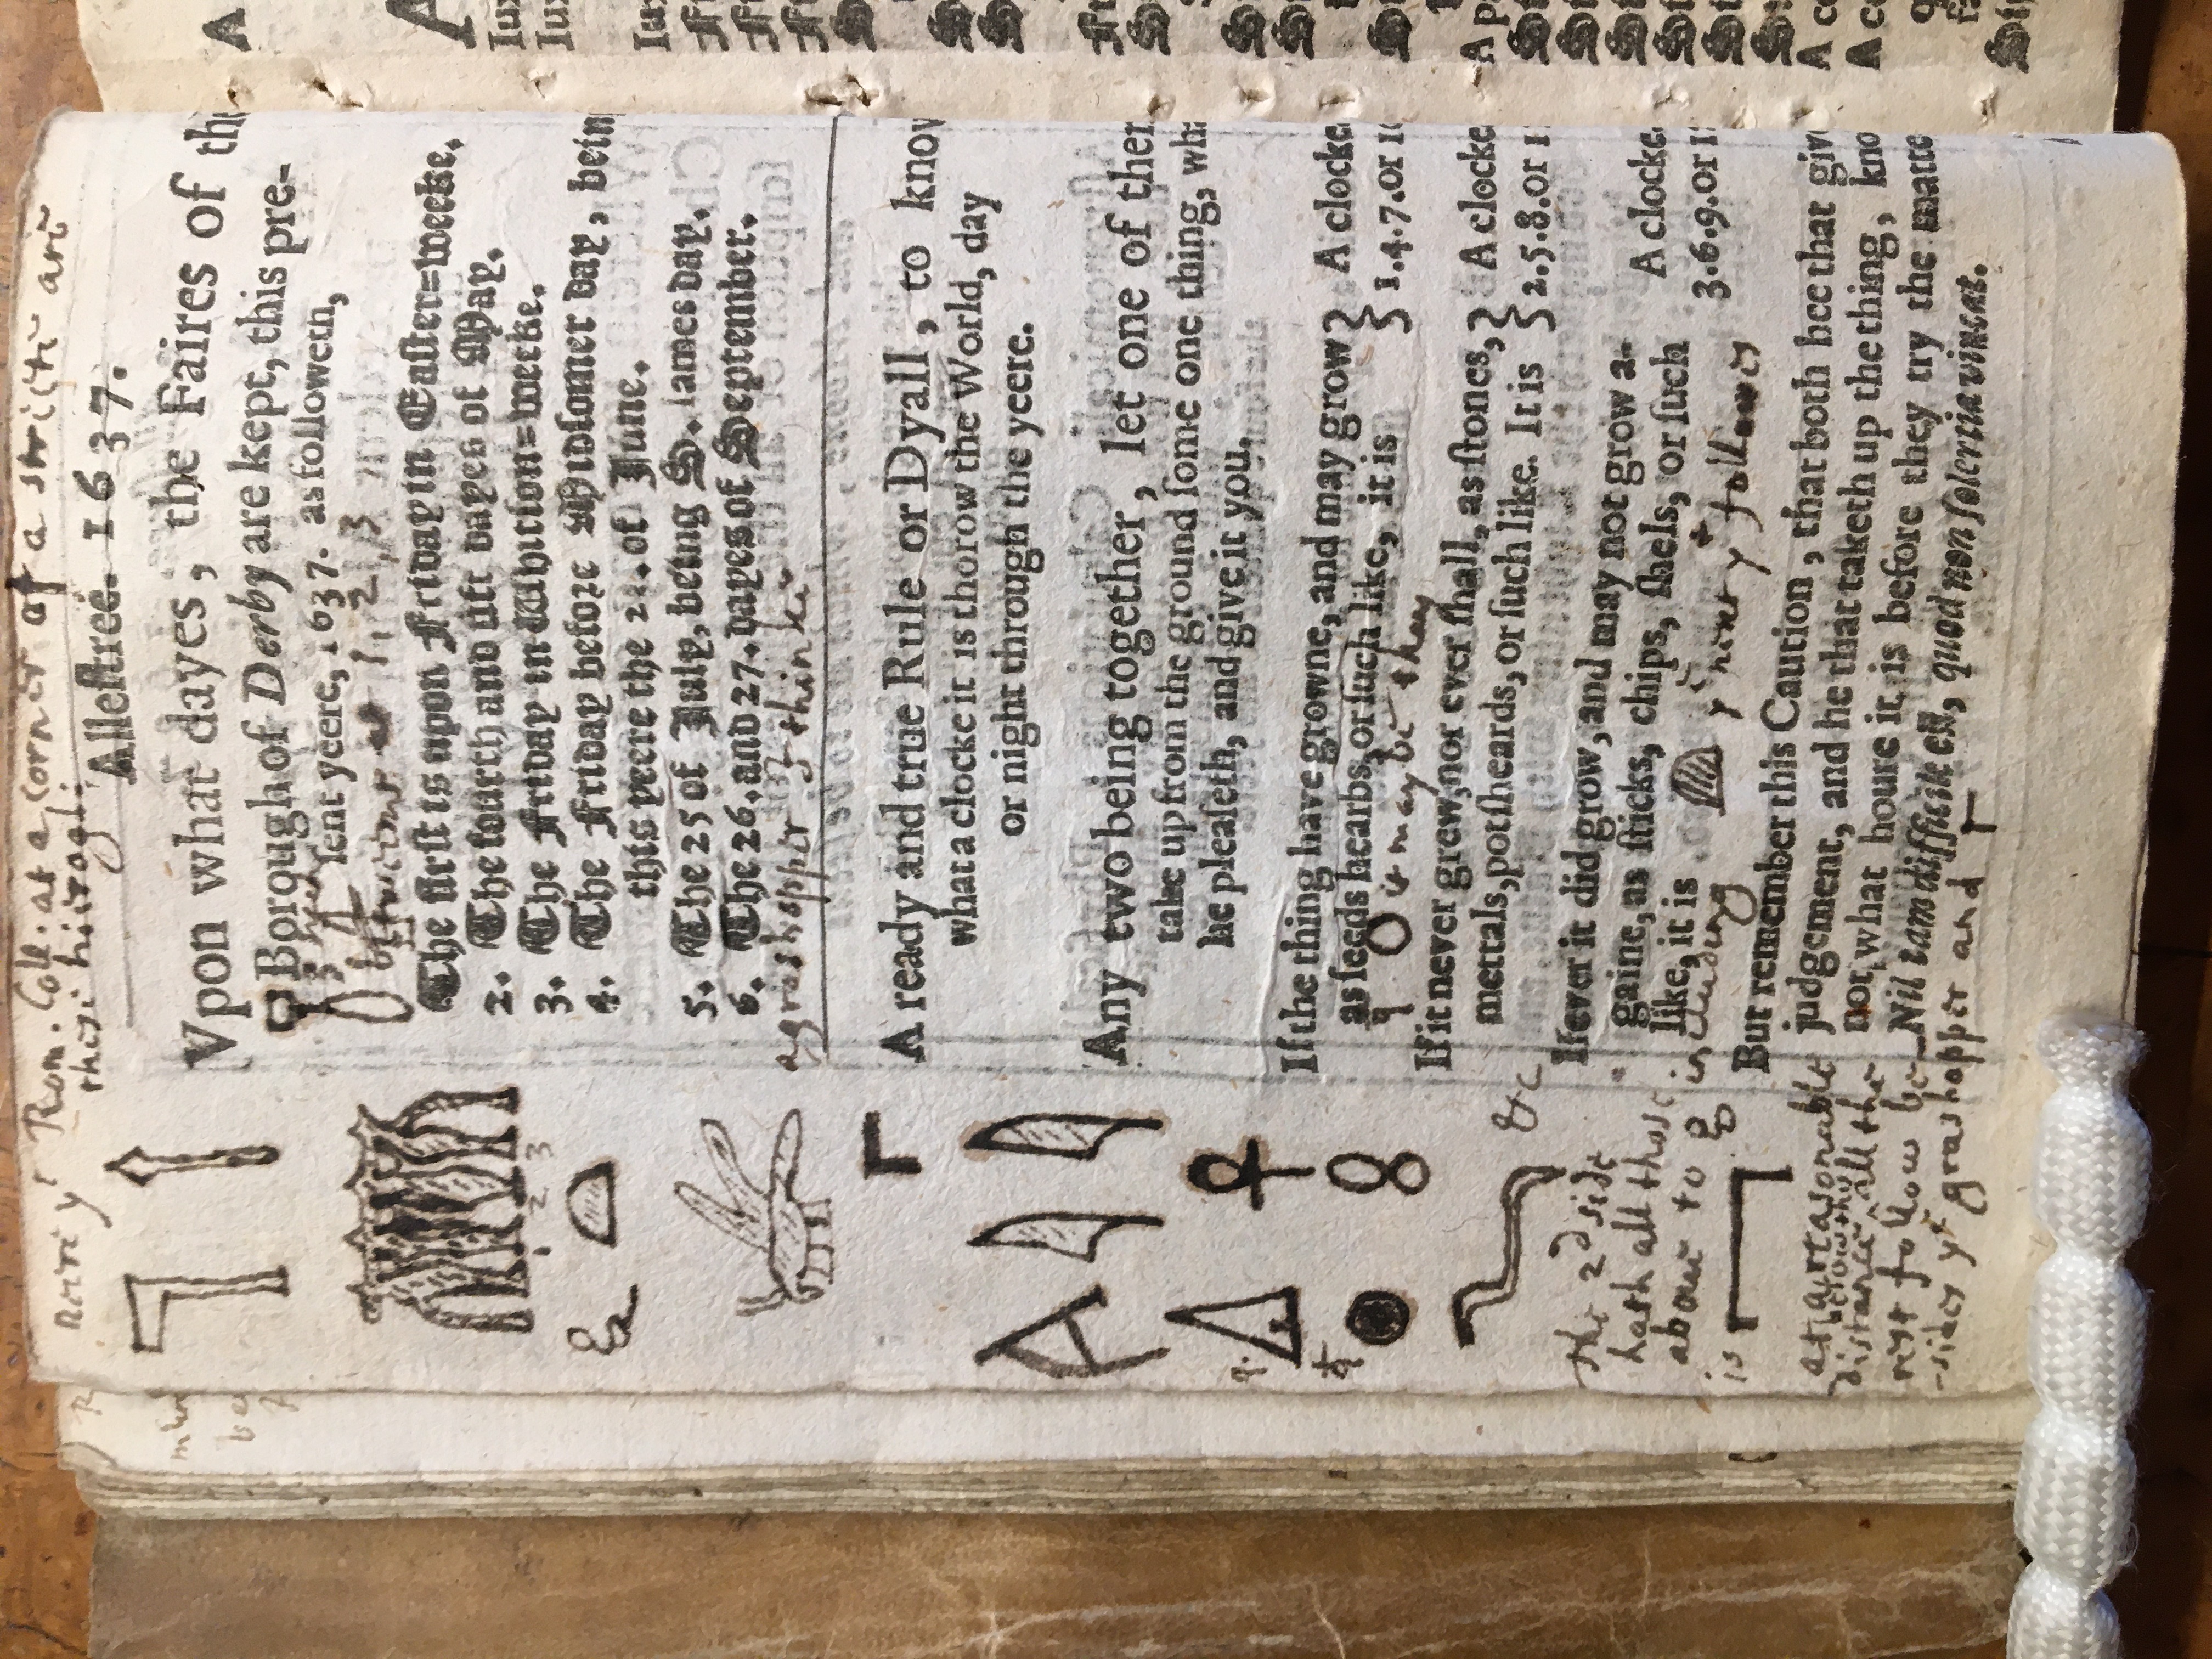 neere yͤ Rom: Coll: at a corner of a streite are
thes: hierogl:
Allestree. 1637.
Vpon what dayes, the Faires of the
Borough of Derby are kept, this pre-
sent yeere, 1637. as followeth,
betweene
1, 2, 3
The first is vpon Friday in Easter=weeke.
2. The fourth and fift dayes of May.
3. The Friday in Whitson=weeke.
4. The Friday before Midsomer day, bein
this yeere the 22. of June.
5. The 25 of July, being S. Iames day.
6. The 26. and 27. dayes of September.
a grashopper I thinke
A ready and true Rule or Dyall, to know
what a clocke it is thorow the World, day
or night through the yeere.
Any two being together, let one of them
take up from the ground some one thing, wha
he pleaseth, and give it you.
If the thing have growne, and may grow } A clocke
as seeds hearbs, or such like, it is } 1.4.7. or 10
it may be thay
If it never grew, nor ever shall, as stones, } A clocke
mettals, potsheards, or such like. It is } 2.5.8. or 1
If ever it did grow, and may not grow a- A clocke
gaine, as sticks, chips, shels, or such 3.6.9. or 1
like, it is
But remember this Caution, that both hee that giv
judgement, and he that taketh up the thing, kno
not, what houre it is before they try the matte
Nil tam difficile est, quod non solertia vincat.
1 2 3
&
&c
the 2d side
hath all those
aboue to &
including
yͤ near yͤ followes
is
at a reasonable
distance all the
rest follow be-
-sides yͤ grashopper and